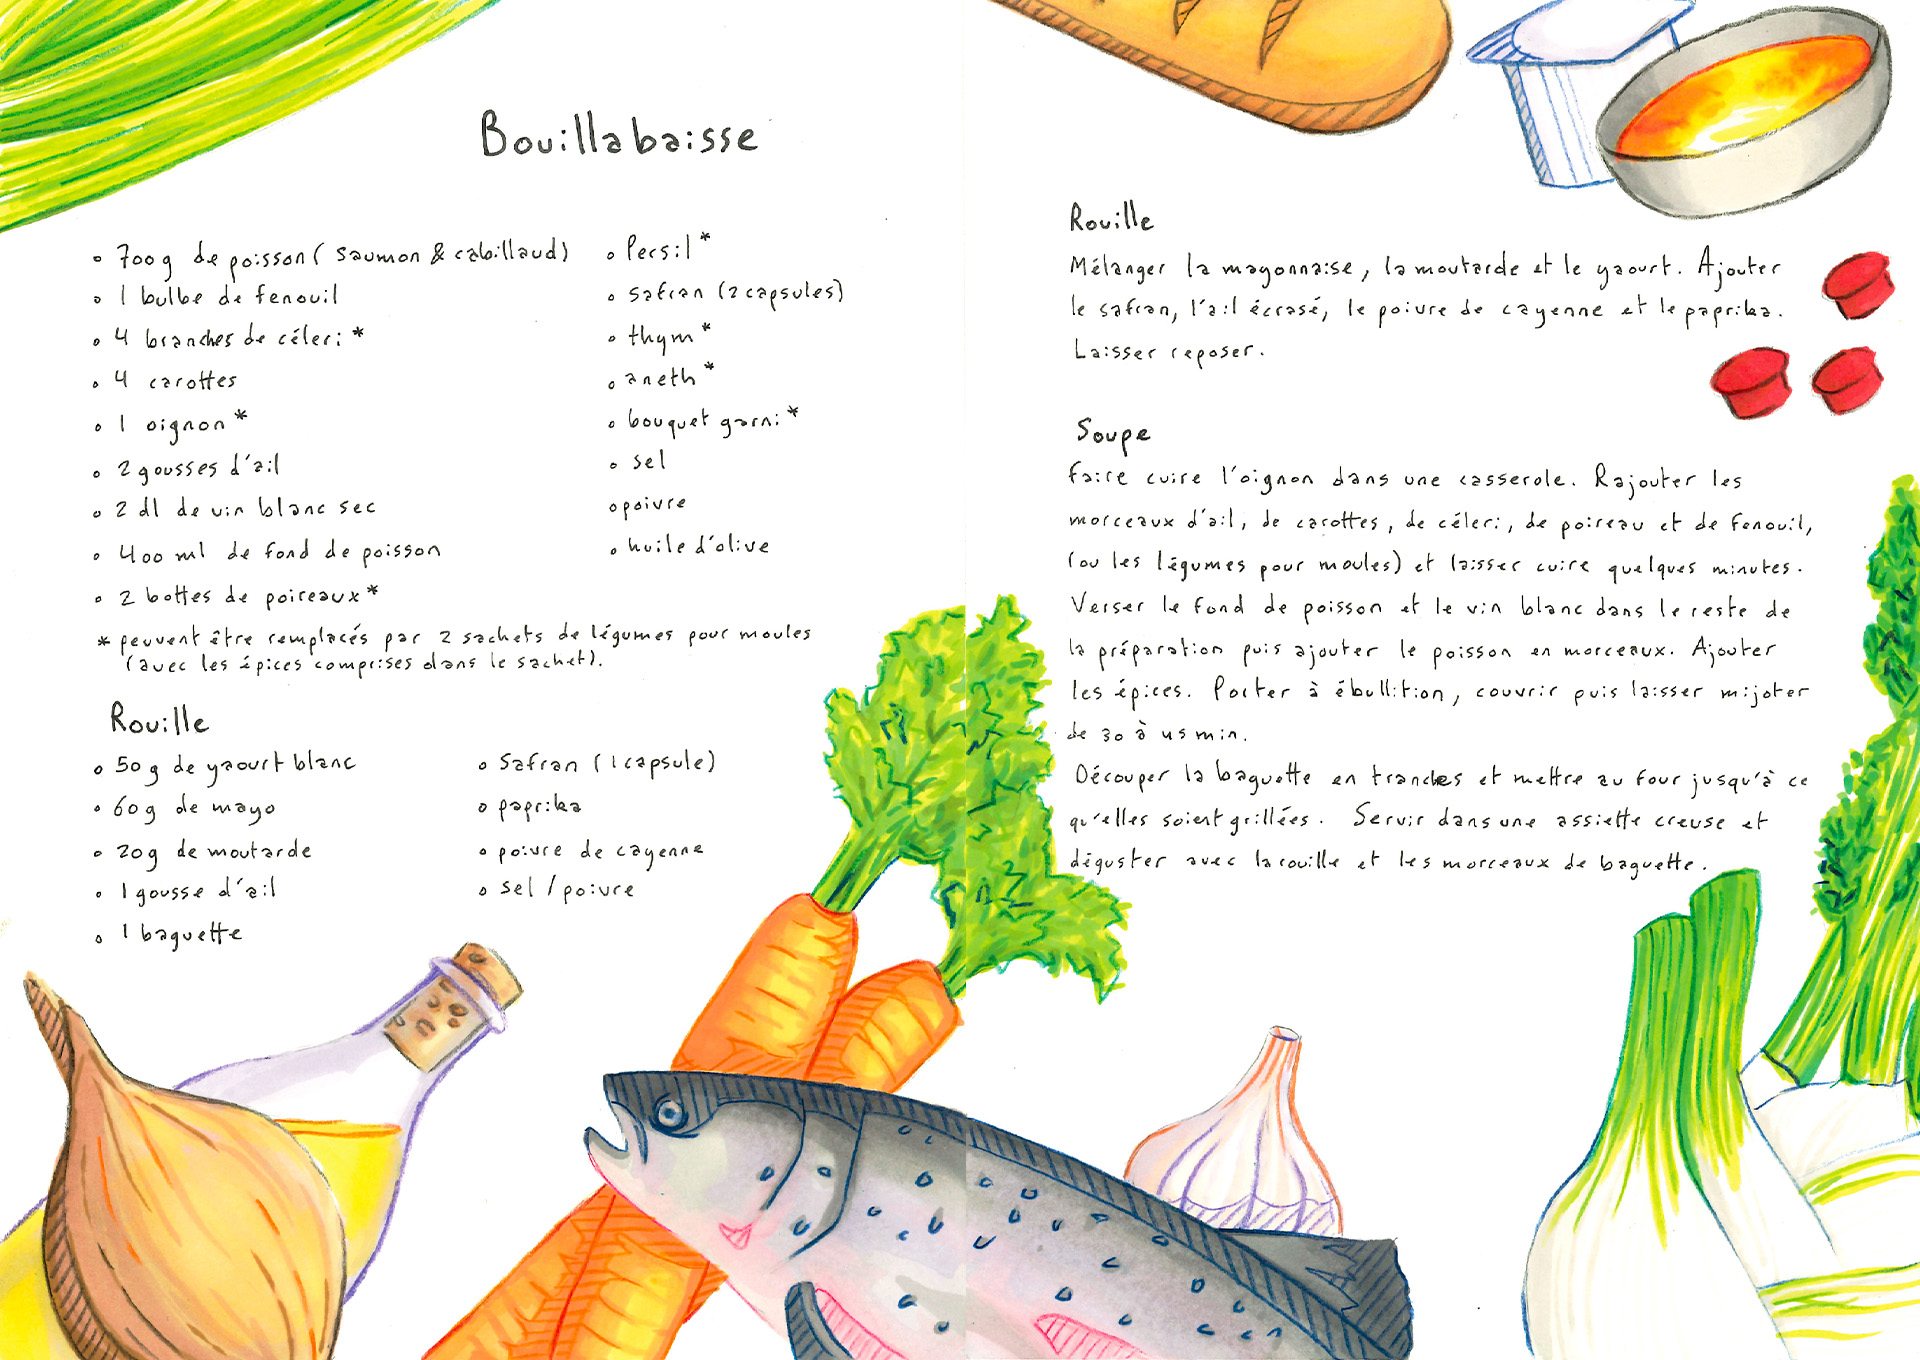 Bouillabaisse
700g de poisson ( saumon & cabillaud)
1 bulbe de fenouil
4 branches de céleri *
4 carottes
1 oignon *
2 gousses d'ail
2 dl de vin blanc sec
400 ml de fond de poisson
2 bottes de poireaux *
Persil *
safran (2 capsules)
thym *
aneth *
bouquet garni *
sel
poivre
huile d'olive
* peuvent être remplacés par 2 sachets de légumes pour moules
(avec les épices comprises dans le sachet).
Rouille
50g de yaourt blanc
60g de mayo
20g de moutarde
1 gousse d'ail
1 baguette
Safran (1 capsule)
paprika
poivre de cayenne
sel / poivre
Rouille
Mélanger la mayonnaise, la moutarde et le yaourt. Ajouter
le safran, l'ail écrasé, le poivre de cayenne et le paprika.
Laisser reposer.
Soupe
Faire cuire l'oignon dans une casserole. Rajouter les
morceaux d'ail, de carottes, de céleri, de poireau et de fenouil,
(ou les légumes pour moules) et laisser cuire quelques minutes.
Verser le fond de poisson et le vin blanc dans le reste de
la préparation puis ajouter le poisson en morceaux. Ajouter
les épices. Porter à ébullition, couvrir puis laisser mijoter
de 30 à 45 min.
Découper la baguette en tranches et mettre au four jusqu'à ce
qu'elles soient grillées. Servir dans une assiette creuse et
déguster avec la rouille et les morceaux de baguette.